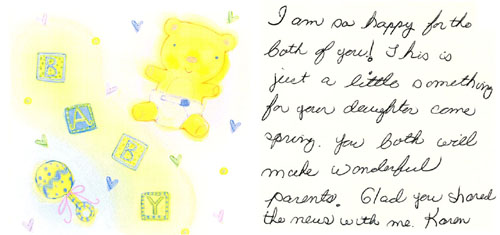 B
A
B
Y
I am so happy for the
both of you! This is
just a little something
for your daughter come
spring. You both will
make wonderful
parents. Glad you shared
the news with me. Karen